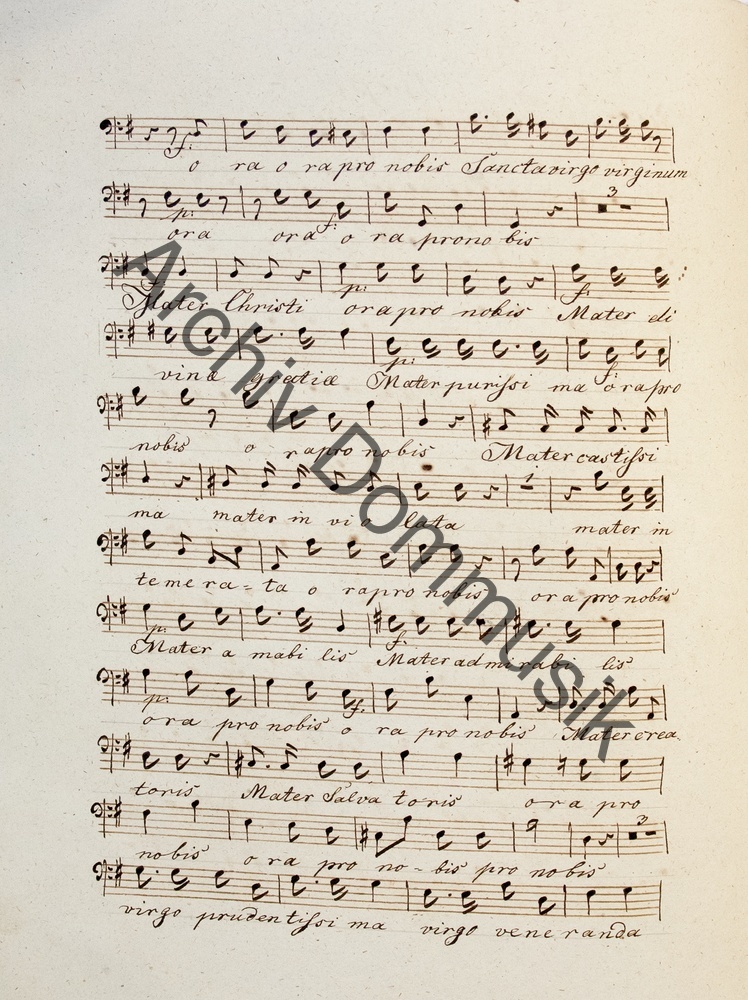 f:
o ra o ra pro nobis Sancta virgo virginum
p: f: 3
ora ora o ra pro no bis
p: f:
Mater Christi ora pro nobis Mater di
p: f:
vinæ gratiæ Mater purissi ma o ra pro
nobis o ra pro nobis Mater castissi
1
ma mater in vi o lata mater in
teme ra - ta o ra pro nobis ora pro nobis
p: f:
Mater a mabi lis Mater admi rabi lis
p: f:
ora pro nobis o ra pro nobis Mater crea
toris Mater Salva toris ora pro
3
nobis o ra pro no - bis pro nobis
virgo prudentissi ma virgo vene randa
Archiv Dommusik